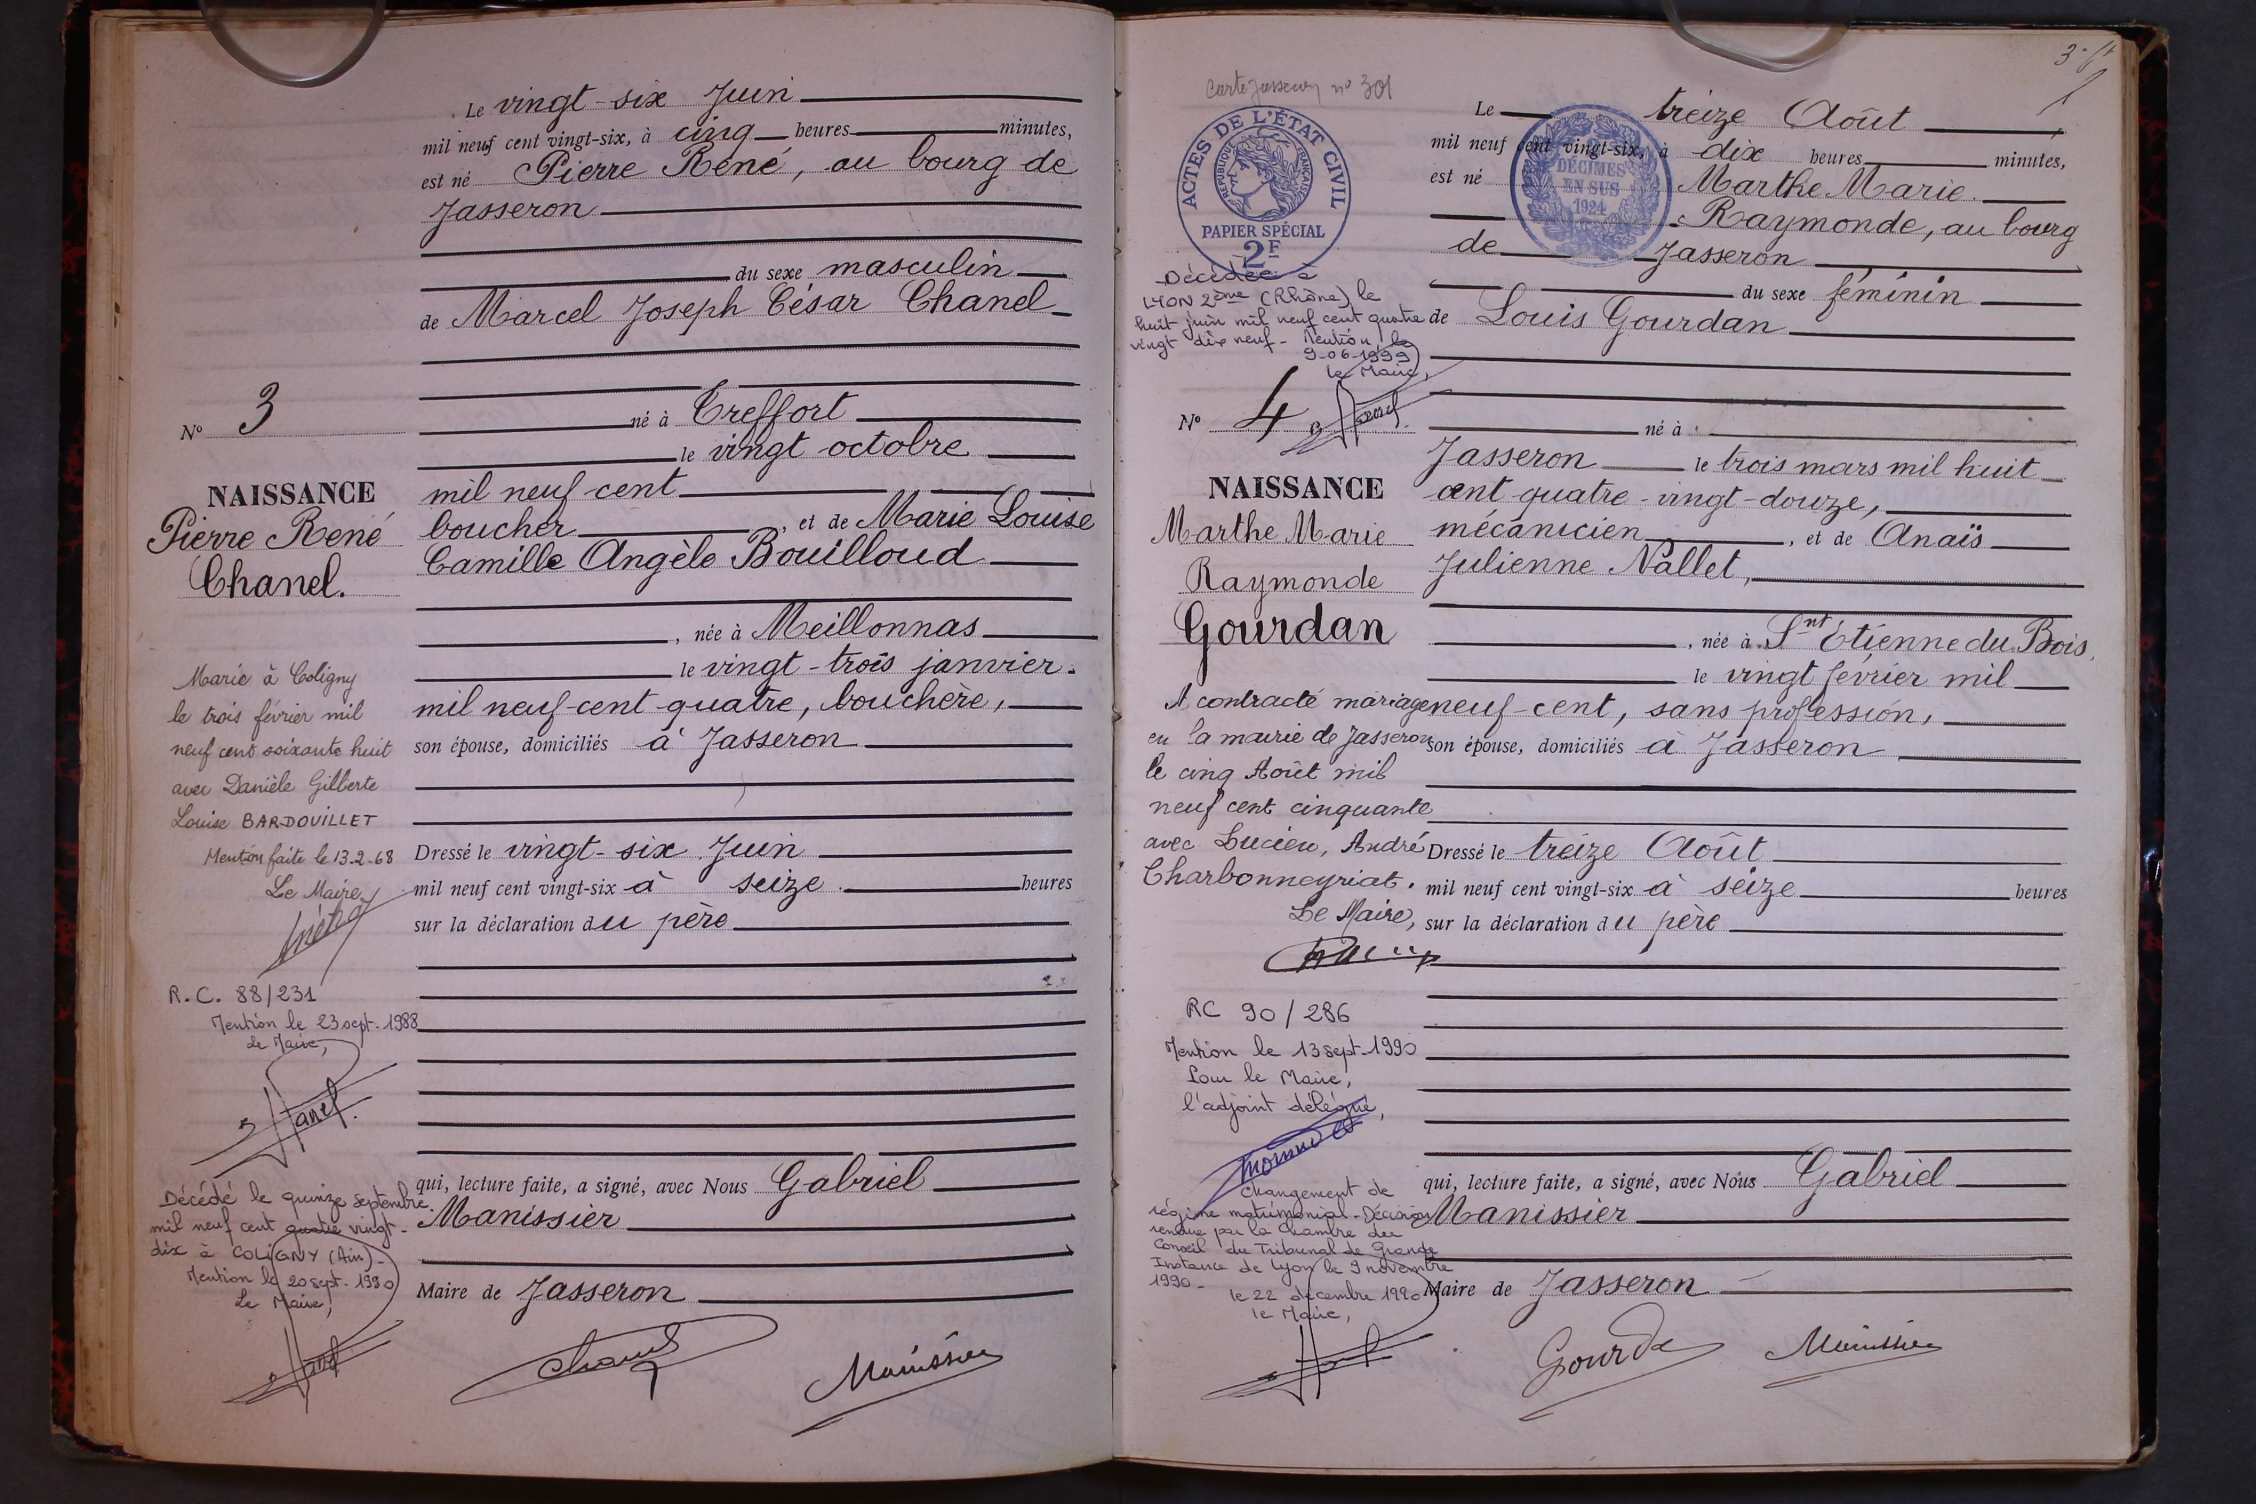 Le vingt-six Juin
mil neuf cent vingt-six, à cinq heures minutes,
est né Pierre René, au bourg de
Jasseron
du sexe masculin
de Marcel Joseph César Chanel
né à Treffort
le vingt octobre
mil neuf cent
boucher, et de Marie Louise
Camille Angèle Bouilloud
, née à Meillonnas
le vingt-trois janvier
mil neuf-cent-quatre, bouchère,
son épouse, domiciliés à Jasseron
Dressé le vingt-six Juin
mil neuf cent vingt-six à seize heures
sur la déclaration du père
qui, lecture faite, a signé, avec Nous Gabriel
Manissier
Maire de Jasseron
Manissier
No 3
NAISSANCE
Pierre René
Chanel.
Marié à Coligny
le trois février mil
neuf cent soixante huit
avec Danièle Gilberte
Louise BARDOUILLET
Mention faite le 13-2-68
Le Maire
R.C. 88/231
Mention le 23 sept. 1988
Le Maire,
Décédé le quinze septembre
mil neuf cent quatre vingt-
dix à COLIGNY (Ain)-
Mention le 20 sept. 1990
Le Maire,
Carte Jasseron no 301
ACTES DE L'ÉTAT CIVIL
RÉPUBLIQUE FRANÇAISE
PAPIER SPÉCIAL
2F
DÉCIMES
EN SUS
1924
Le treize Août
mil neuf cent vingt-six, à dix heures minutes,
est né Marthe Marie
Raymonde, au bourg
de Jasseron
du sexe féminin
de Louis Gourdan
né à
Jasseron le trois mars mil huit
cent quatre-vingt-douze,
mécanicien, et de Anaïs
Julienne Nallet,
, née à Snt Etienne du Bois,
le vingt février mil
neuf-cent, sans profession,
son épouse, domiciliés à Jasseron
Dressé le treize Août
mil neuf cent vingt-six à seize heures
sur la déclaration du père
qui, lecture faite, a signé, avec Nous Gabriel
Manissier
Maire de Jasseron
Gourda
Manissier
Décédée à
LYON 2ème (Rhône) le
huit juin mil neuf cent quatre
vingt dix neuf - Mention le
9-06-1999
le Maire,
No 4
NAISSANCE
Marthe Marie
Raymonde
Gourdan
A contracté mariage
en la mairie de Jasseron
le cinq Août mil
neuf cent cinquante
avec Lucien, André
Charbonneyriat.
Le Maire,
RC 90/286
Mention le 13 sept-1990
Pour le Maire,
l'adjoint délégué,
Changement de
régime matrimonial - Décision
rendue par la Chambre du
Conseil du Tribunal de Grande
Instance de Lyon le 9 novembre
1990-
le 22 décembre 1990
le Maire,